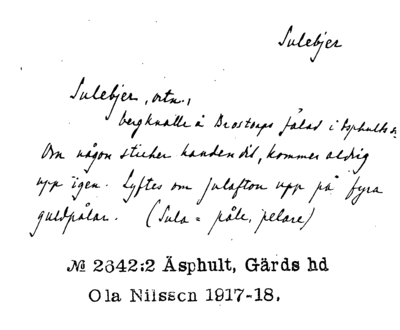 Sulebjer
Sulebjer, ortn.,
bergknalle å Brostorps fälad i Äsphults s.
Om någon sticker handen dit, kommer aldrig
upp igen. Lyftes om julafton upp på fyra
guldpålar. (Sula = påle, pelare)
№ 2642:2 Äsphult, Gärds hd
Ola Nilsson 1917-18.